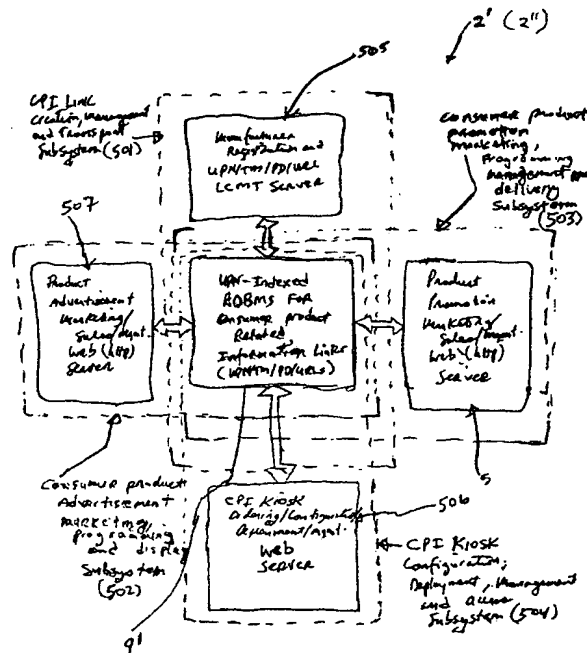 505
2' (2")
CPI LINK
Creation, Management
and Transport
Subsystem (501)
Manufacturer
Registration and
UPN/TM/PD/URL
LCMT SERVER
Consumer product
promotion
marketing,
Programming
management and
delivery
Subsystem
(503)
507
Product
Advertisement
Marketing/
Sales/Mgmt.
Web (http)
Server
UPN-Indexed
RDBMS FOR
Consumer product
Related
Information Links
(UPN/TM/PD/URLs)
Product
Promotion
Marketing/
Sales/Mgmt.
Web (http)
Server
5
Consumer product
Advertisement
marketing,
programming
and display
Subsystem
(502)
CPI KIOSK
Ordering/Configuration
Deployment/Mgmt.
Web
SERVER
506
CPI KIOSK
Configuration,
Deployment, Management
and Access
Subsystem (504)
9'